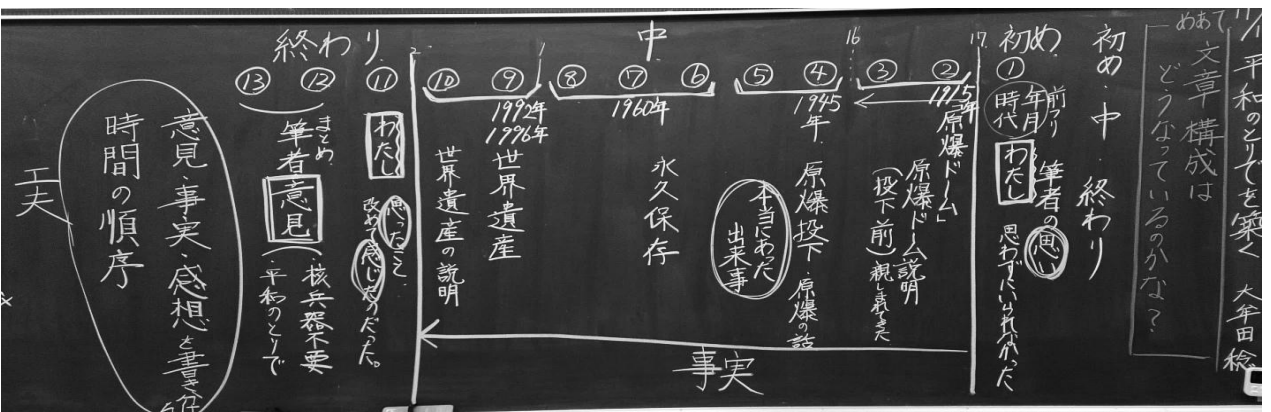 平和のとりでを築く 大牟田稔
めあて
文章構成は
どうなっているのかな?
初め・中・終わり
17
初め
①
前フリ
年月
時代
筆者の思い
わたし
思わずにいられなかった
中
16
②
③
1915年
「原爆ドーム」
原爆ドーム説明
(投下前)親しまれてきた
④
⑤
1945年
原爆投下・原爆の話
本当にあった
出来事
⑥
⑦
⑧
1960年
永久保存
1
⑨
⑩
1992年
1996年
世界遺産
世界遺産の説明
2
事実
終わり
⑪
わたし
思ったこと
改めて感じたのだった。
⑫
⑬
まとめ
筆者意見
・核兵器不要
・平和のとりで
意見・事実・感想を書き
時間の順序
工夫